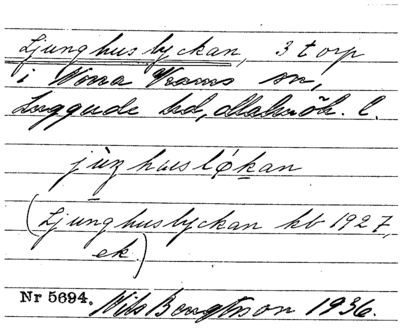 Ljunghuslyckan, 3 torp
i Norra Vrams sn,
Luggude hd, Malmöh. l.
jùŋhusløkan
(Ljunghuslyckan kb 1927,
ek.)
Nr 5694. Nils Bengtsson 1936.